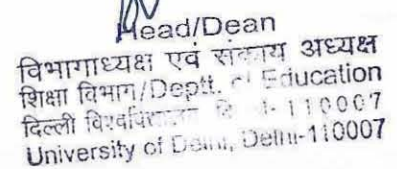 Head/Dean
विभागाध्यक्ष एवं संकाय अध्यक्ष
शिक्षा विभाग/Deptt. of Education
दिल्ली विश्वविद्यालय 110007
University of Delhi, Delhi-110007